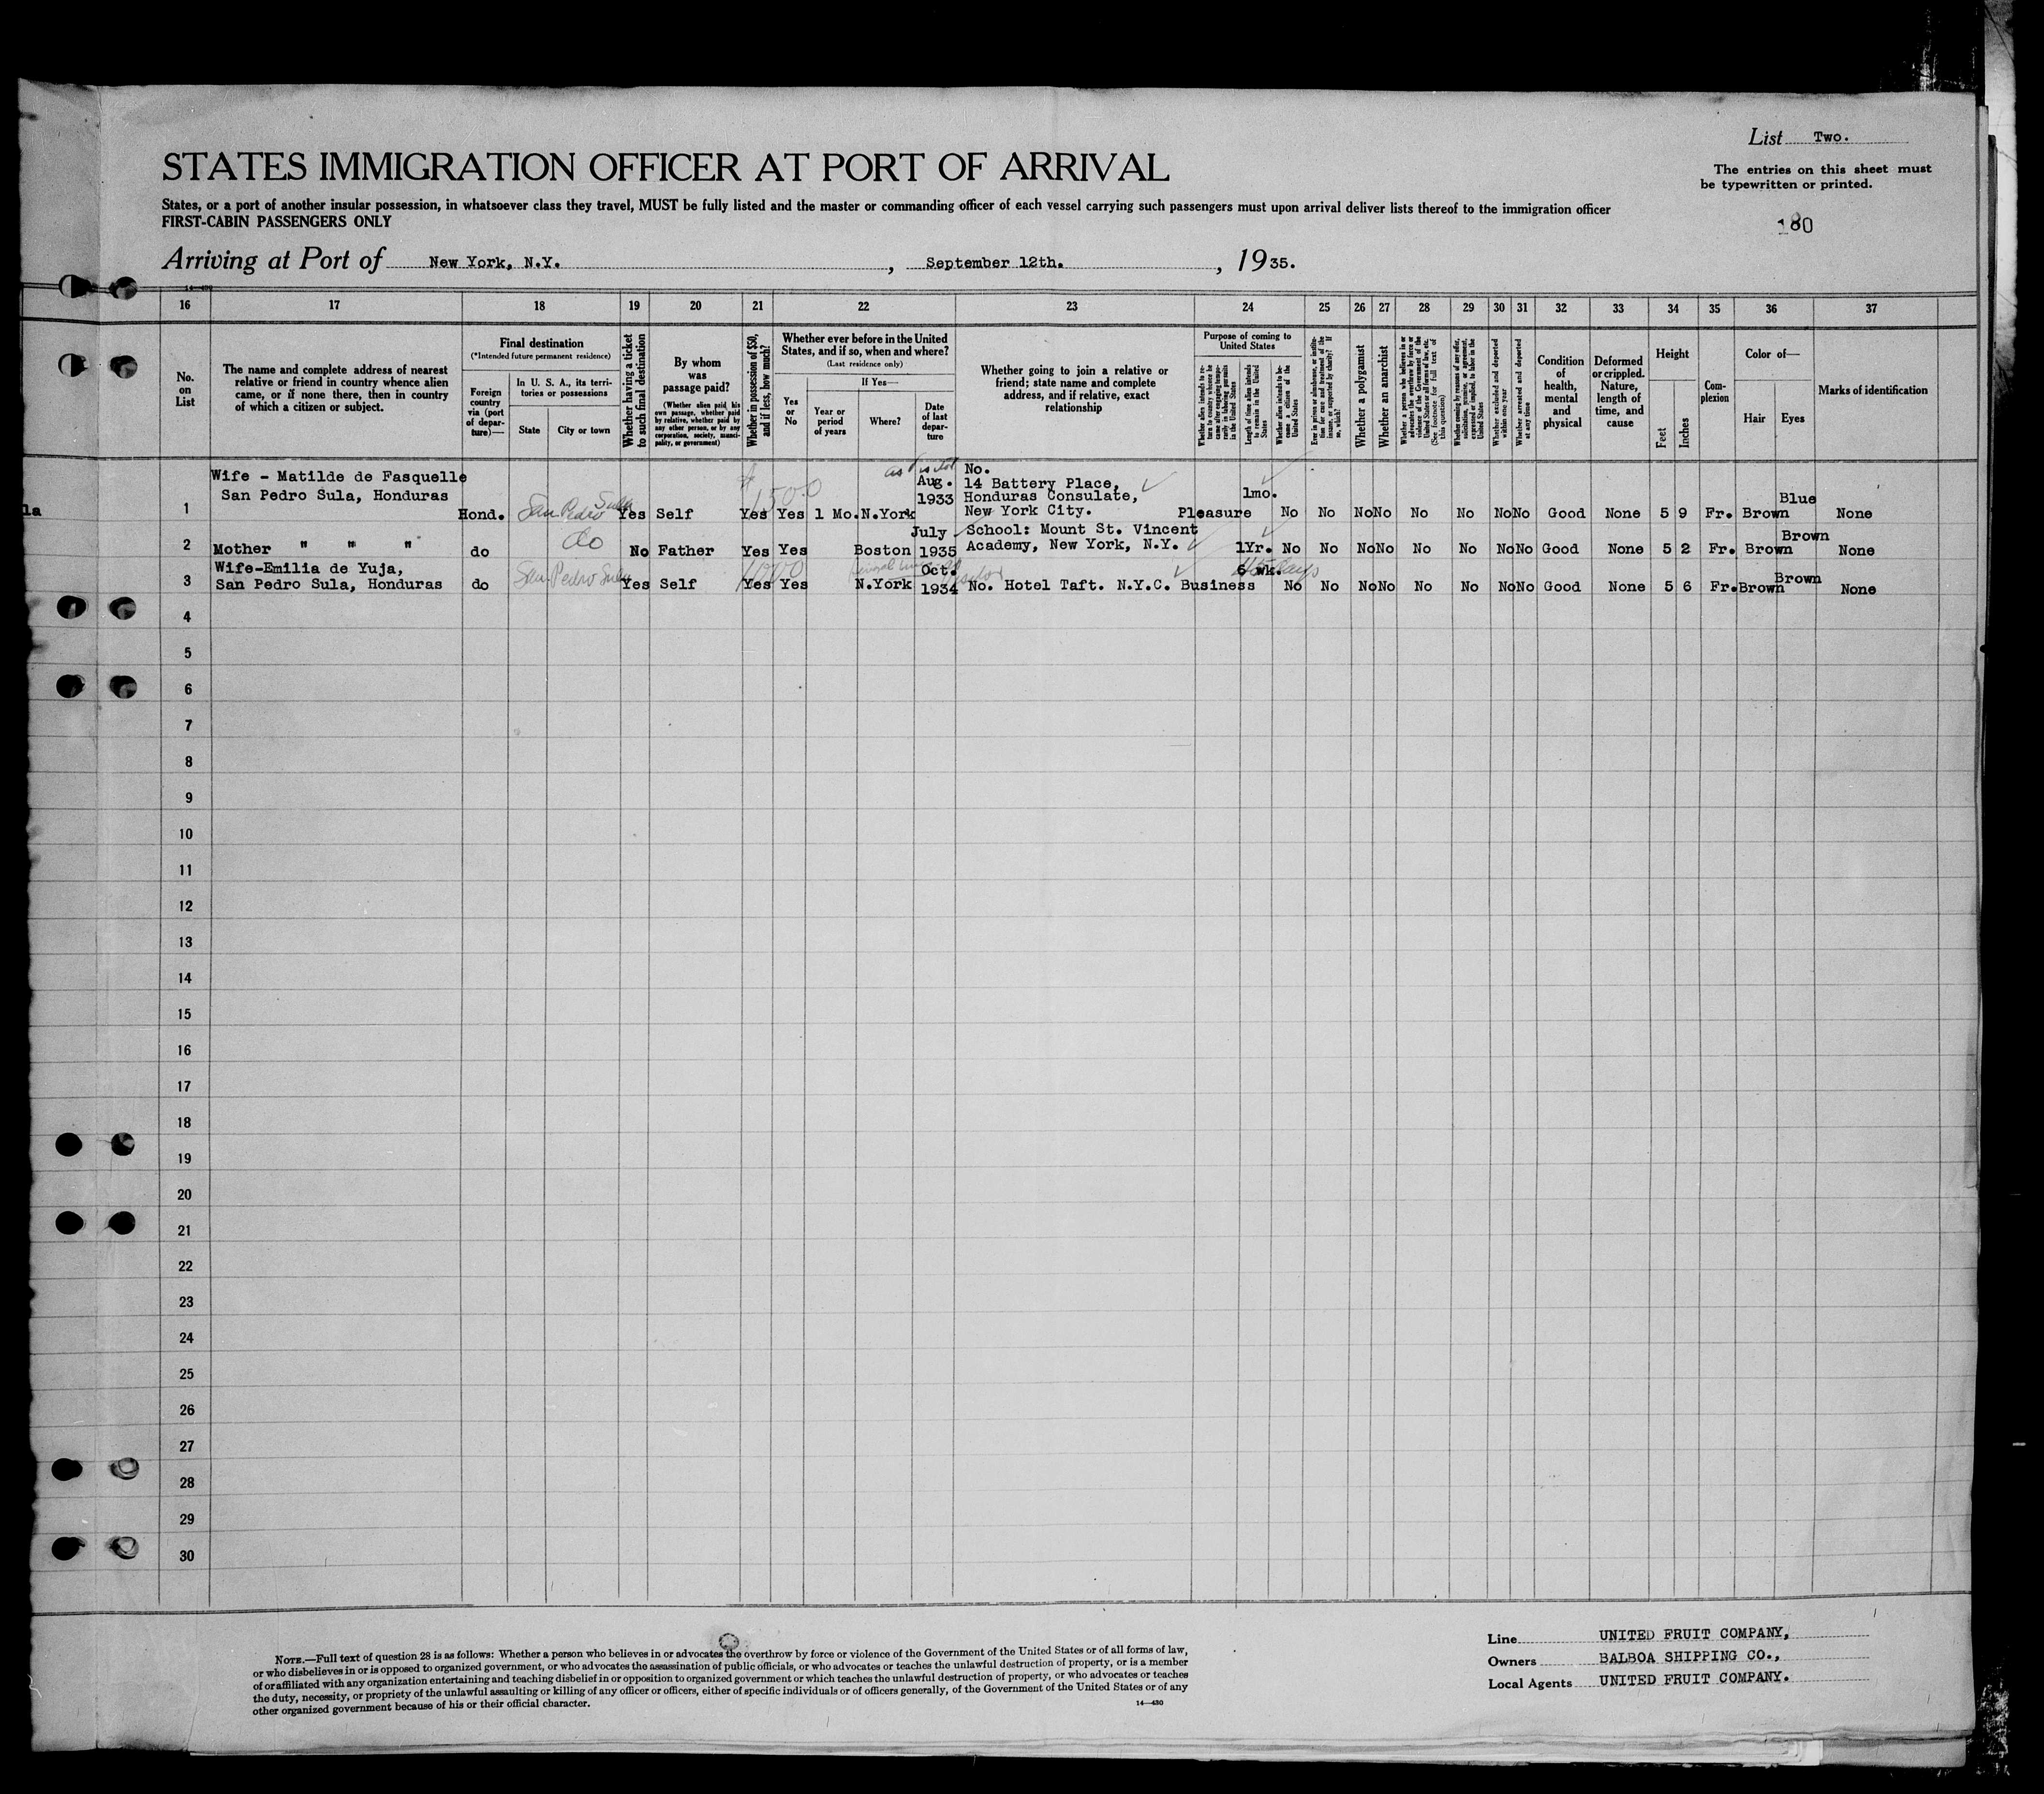 List Two.
STATES IMMIGRATION OFFICER AT PORT OF ARRIVAL
The entries on this sheet must
be typewritten or printed.
States, or a port of another insular possession, in whatsoever class they travel, MUST be fully listed and the master or commanding officer of each vessel carrying such passengers must upon arrival deliver lists thereof to the immigration officer
FIRST-CABIN PASSENGERS ONLY
180
Arriving at Port of New York, N.Y. , September 12th. , 1935.
16 17 18 19 20 21 22 23 24 25 26 27 28 29 30 31 32 33 34 35 36 37
No.
on
List
The name and complete address of nearest
relative or friend in country whence alien
came, or if none there, then in country
of which a citizen or subject.
Final destination
(*Intended future permanent residence)
Foreign
country
via (port
of depar-
ture)—
In U. S. A., its terri-
tories or possessions
State City or town
Whether having a ticket
to such final destination
By whom
was
passage paid?
(Whether alien paid his
own passage, whether paid
by relative, whether paid by
any other person, or by any
corporation, society, munici-
pality, or government)
Whether in possession of $50,
and if less, how much?
Whether ever before in the United
States, and if so, when and where?
(Last residence only)
Yes
or
No
If Yes—
Year or
period
of years
Where?
Date
of last
depar-
ture
Whether going to join a relative or
friend; state name and complete
address, and if relative, exact
relationship
Purpose of coming to
United States
Length of time alien intends
to remain in the United
States
Whether alien intends to be-
come a citizen of the
United States
Whether a polygamist
Whether an anarchist
Whether excluded and deported
within one year
Whether arrested and deported
at any time
Condition
of
health,
mental
and
physical
Deformed
or crippled.
Nature,
length of
time, and
cause
Height
Feet Inches
Com-
plexion
Color of—
Hair Eyes
Marks of identification
la
Wife - Matilde de Fasquelle
San Pedro Sula, Honduras
1 Hond. San Pedro Sula Yes Self Yes $1500 Yes 1 Mo. N.York as Visitor Aug. 1933
No.
14 Battery Place,
Honduras Consulate,
New York City.
Pleasure 1mo. No No No No No No No No Good None 5 9 Fr. Brown Blue None
2 Mother " " " do do No Father Yes Yes Boston July 1935
School: Mount St. Vincent
Academy, New York, N.Y.
1Yr. No No No No No No No No Good None 5 2 Fr. Brown Brown None
Wife-Emilia de Yuja,
San Pedro Sula, Honduras
3 do San Pedro Sula Yes Self Yes 1000 Yes N.York Oct. 1934 visitor
No. Hotel Taft. N.Y.C. Business 6 wk. days No No No No No No No No Good None 5 6 Fr. Brown Brown None
4
5
6
7
8
9
10
11
12
13
14
15
16
17
18
19
20
21
22
23
24
25
26
27
28
29
30
NOTE.—Full text of question 28 is as follows: Whether a person who believes in or advocates the overthrow by force or violence of the Government of the United States or of all forms of law,
or who disbelieves in or is opposed to organized government, or who advocates the assassination of public officials, or who advocates or teaches the unlawful destruction of property, or is a member
of or affiliated with any organization entertaining and teaching disbelief in or opposition to organized government or which teaches the unlawful destruction of property, or who advocates or teaches
the duty, necessity, or propriety of the unlawful assaulting or killing of any officer or officers, either of specific individuals or of officers generally, of the Government of the United States or of any
other organized government because of his or their official character.
14—430
Line UNITED FRUIT COMPANY,
Owners BALBOA SHIPPING CO.,
Local Agents UNITED FRUIT COMPANY.